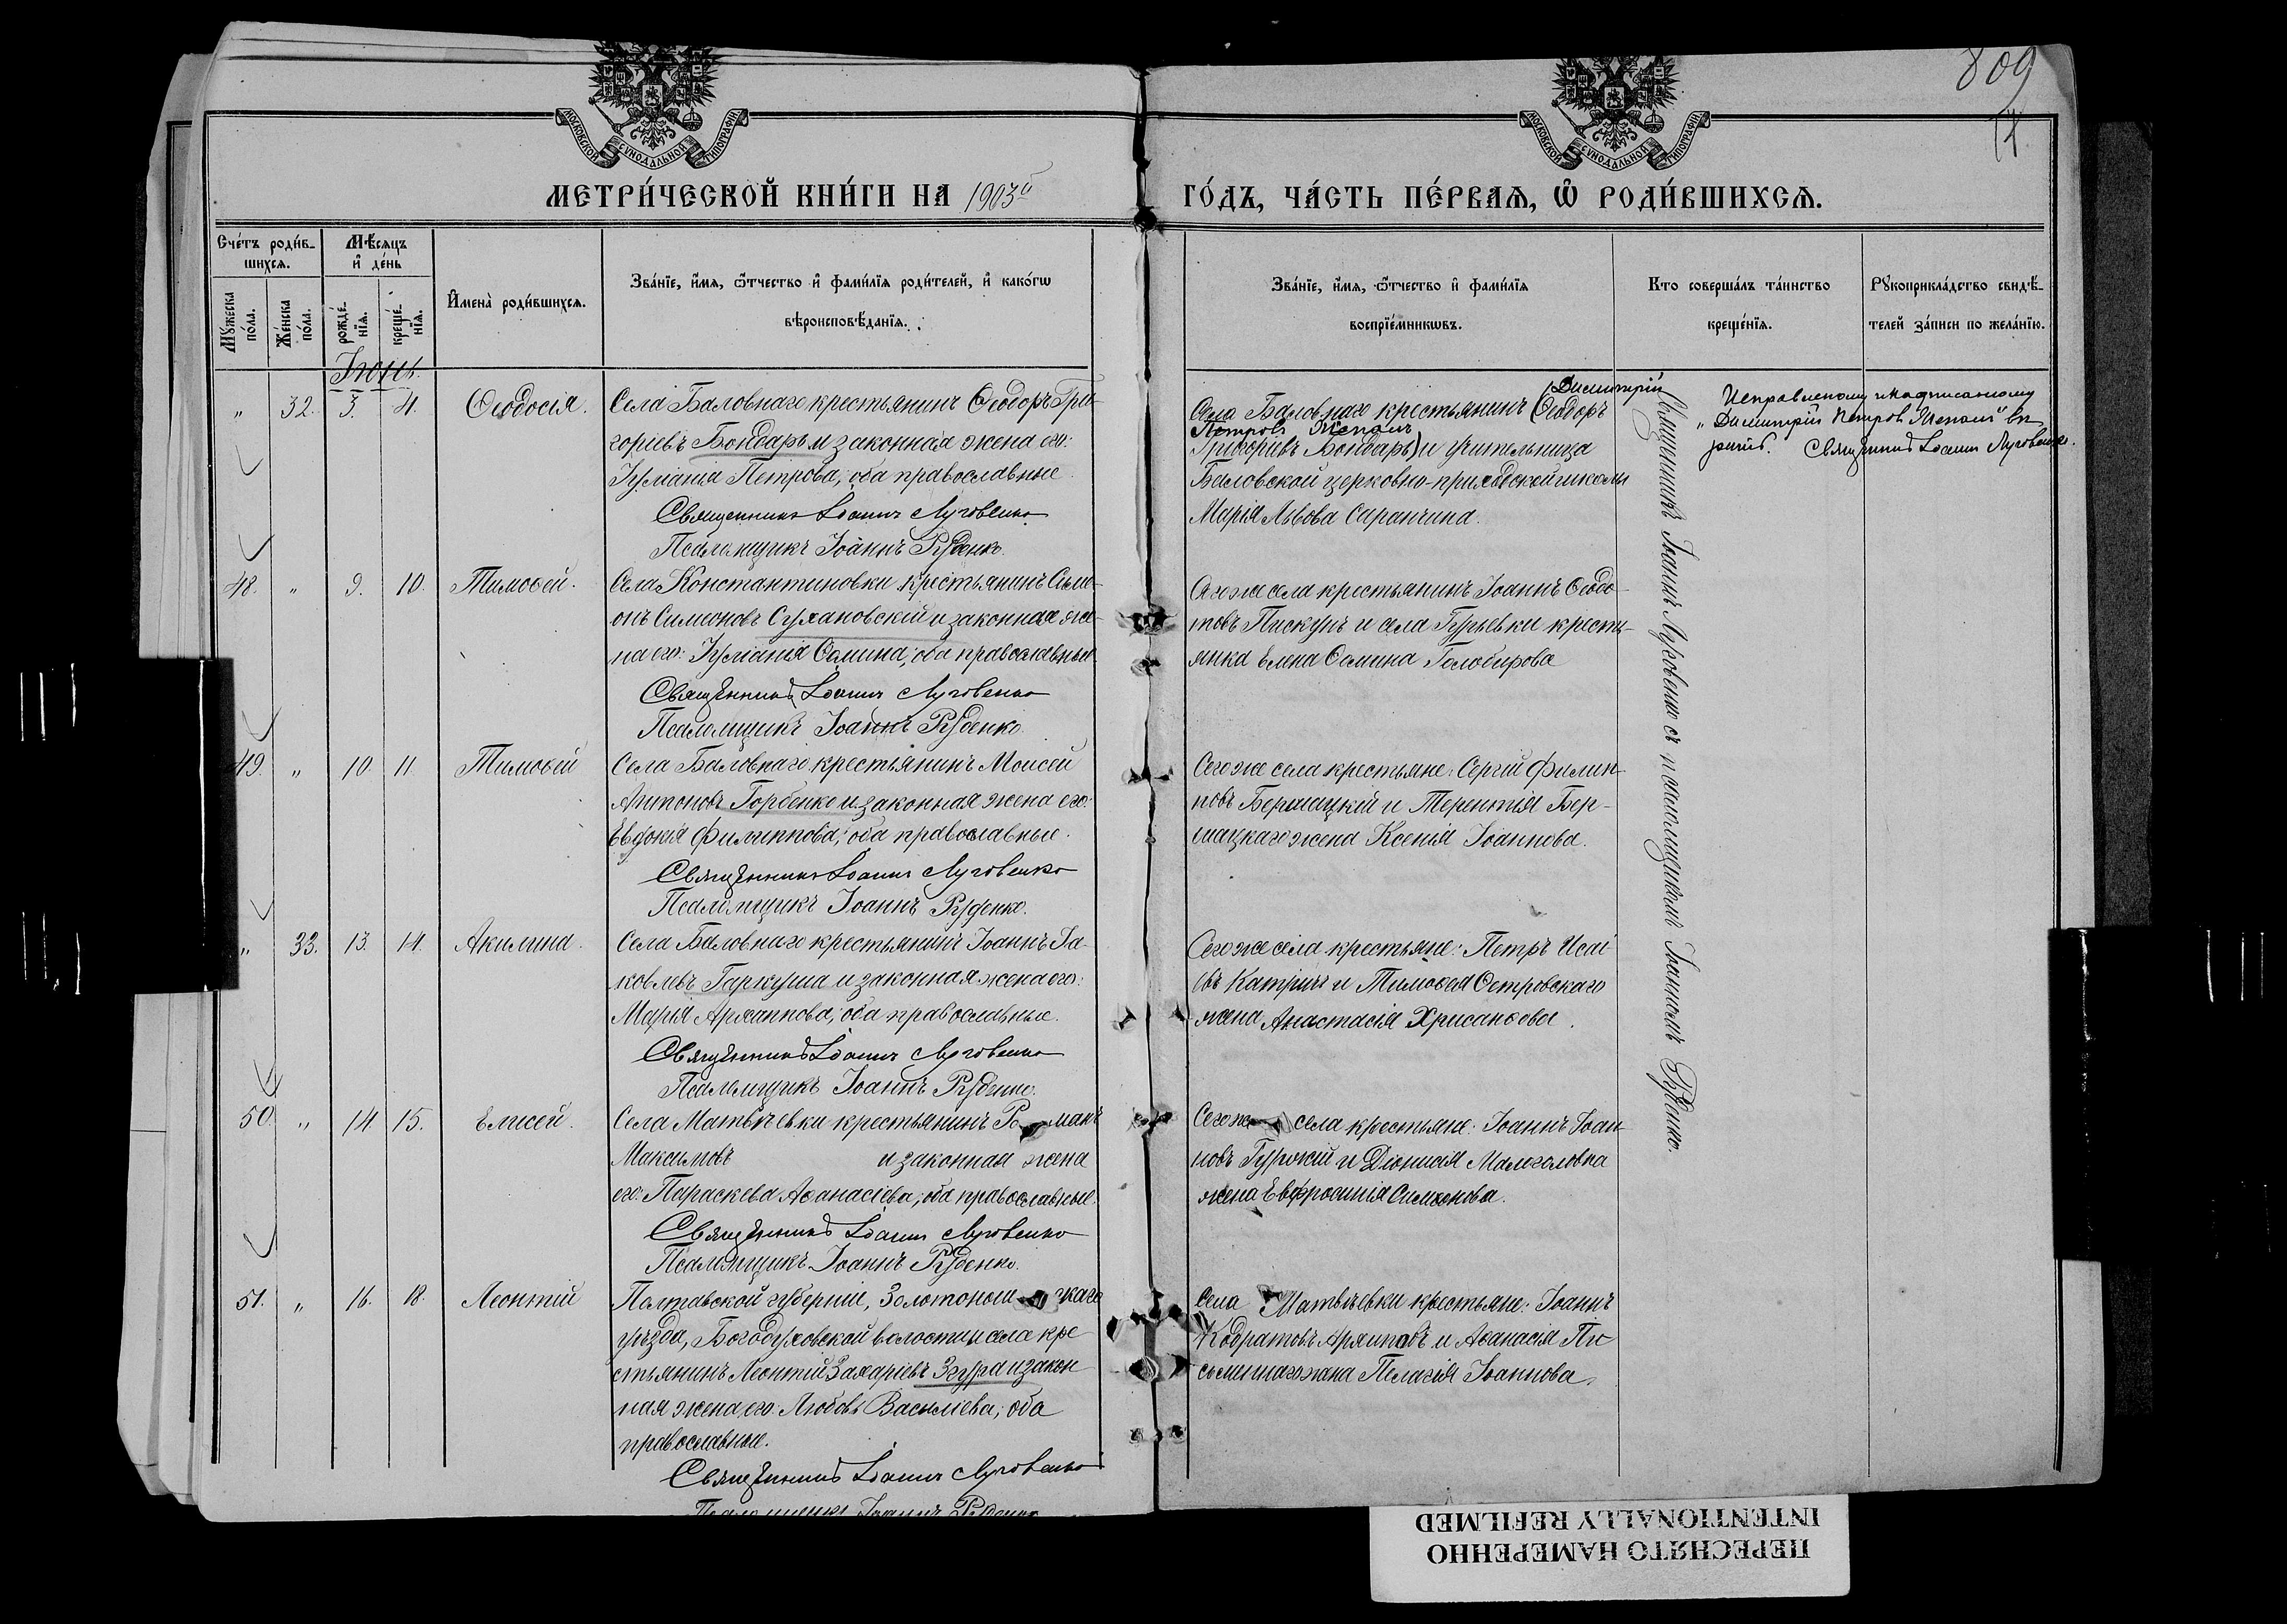 809
14
МОСКОВСКОЙ СѴНОДАЛЬНОЙ ТИПОГРАФІИ
МОСКОВСКОЙ СѴНОДАЛЬНОЙ ТИПОГРАФІИ
МЕТРИ́ЧЕСКОЙ КНИ́ГИ НА 1903й
ГО́ДЪ, ЧА́СТЬ ПЕ́РВАѦ, Ѡ҆ РОДИ́ВШИХСѦ.
Сче́тъ роди́в-
шихсѧ.
Мꙋ́жеска по́ла.
Же́нска по́ла.
Мѣ́сѧцъ
и҆ де́нь
рожде́-
нїѧ.
креще́-
нїѧ.
И҆мена̀ роди́вшихсѧ.
Зва́нїе, и҆́мѧ, ѻ҆́тчество и҆ фами́лїѧ роди́телей, и҆ како́гѡ
вѣроисповѣ́данїѧ.
Зва́нїе, и҆́мѧ, ѻ҆́тчество и҆ фами́лїѧ
воспрїе́мникѡвъ.
Кто соверша́лъ та́инство
креще́нїѧ.
Рꙋкоприкла́дство свидѣ́-
телей за́писи по жела́нїю.
Іюнь.
" 32. 3. 4. Ѳеодосія.
Села Баловнаго крестьянинъ Ѳеодоръ Гри-
горіевъ Бондарь и законная жена его:
Іуліанія Петрова, оба православные
Священникъ Іоаннъ Луговенко
Псаломщикъ Іоаннъ Руденко.
Димитрій
Села Баловнаго крестьянинъ (Ѳеодоръ
Петровъ
Григоріевъ Бондарь) и учительница
Баловской церковно-приходской школы
Марія Львова Саранчина.
Священникъ Іоаннъ Луговенко съ псаломщикомъ Іоанномъ Руденко.
Исправленому и надписанному
"Димитрій Петров
Священникъ Іоаннъ Луговенко.
48. " 9. 10. Тимоѳей.
Села Константиновки крестьянинъ Симе-
онъ Симеоновъ Сухановскій и законная же-
на его: Іуліанія Ѳомина, оба православные
Священникъ Іоаннъ Луговенко
Псаломщикъ Іоаннъ Руденко.
Сего же села крестьянинъ Іоаннъ Ѳеодо-
товъ Пискунъ и села Гурьевки кресть-
янка Елена Ѳомина
49. " 10. 11. Тимоѳей
Села Баловнаго крестьянинъ Моисей
Антоновъ Горбенко и законная жена его:
Евдокія Филиппова, оба православные.
Священникъ Іоаннъ Луговенко
Псаломщикъ Іоаннъ Руденко.
Сего же села крестьяне: Сергій Филип-
повъ Бершацкій и Терентія Бер-
шацкаго жена Ксенія Іоаннова.
" 33. 13. 14. Акилина.
Села Баловнаго крестьянинъ Іоаннъ Іа-
ковлевъ Гаркуша и законная жена его:
Марія Архиппова, оба православные.
Священникъ Іоаннъ Луговенко
Псаломщикъ Іоаннъ Руденко.
Сего же села крестьяне: Петръ Исаі
евъ и Тимоѳея Островскаго
жена Анастасія Хрисанѳова.
50. " 14. 15. Елисей.
Села Матвѣевки крестьянинъ Романъ
Максимовъ и законная жена
его: Параскева Аѳанасіева, оба православные.
Священникъ Іоаннъ Луговенко
Псаломщикъ Іоаннъ Руденко.
Сего же села крестьяне: Іоаннъ Іоан-
новъ и Діонисія
жена Евфросинія Симеонова.
51. " 16. 18. Леонтій
Полтавской губерніи, Золотоношскаго
уѣзда, Богодуховской волости и села кре
стьянинъ Леонтій Захаріевъ Згура и закон
ная жена его: Любовь Василіева, оба
православные.
Священникъ Іоаннъ Луговенко
Псаломщикъ Іоаннъ Руденко
Села Матвѣевки крестьяне: Іоаннъ
Кодратовъ Архиповъ и Аѳанасія
жена Пелагія Іоаннова.
ПЕРЕСНЯТО НАМЕРЕННО
INTENTIONALLY REFILMED